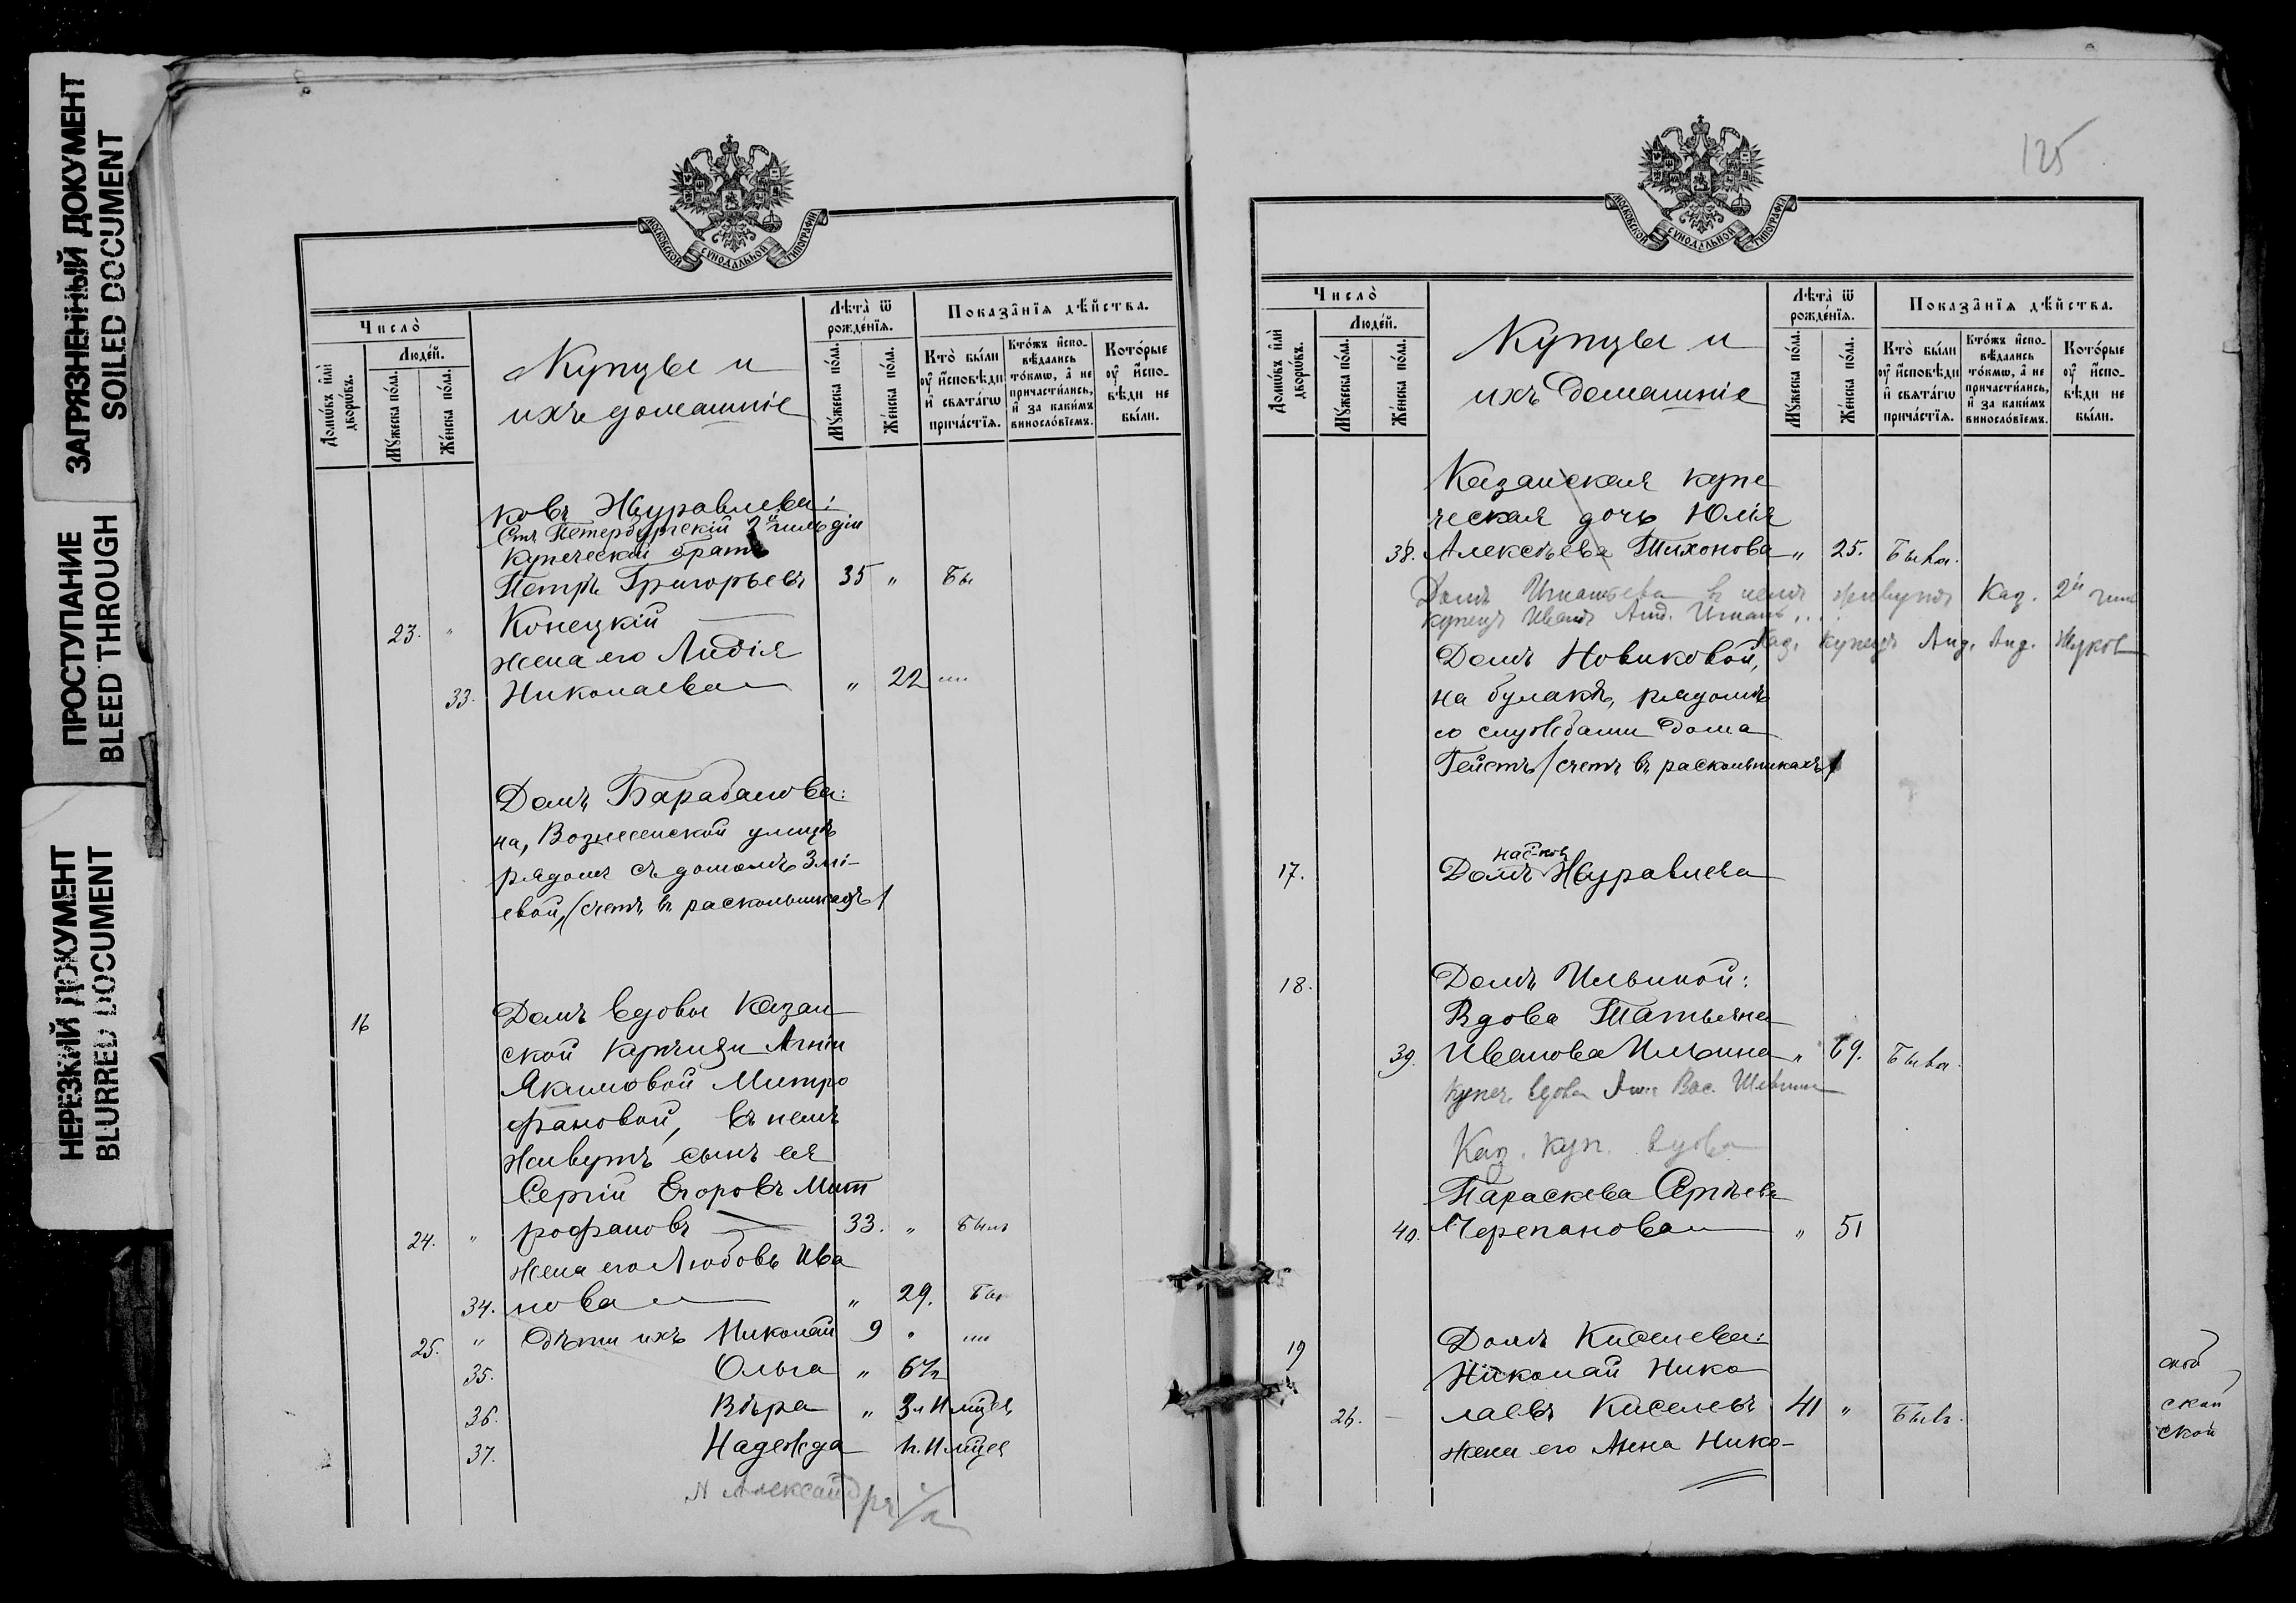 ЗАГРЯЗНЕННЫЙ ДОКУМЕНТ
SOILED DOCUMENT
ПРОСТУПАНИЕ
BLEED THROUGH
НЕРЕЗКИЙ ДОКУМЕНТ
BLURRED DOCUMENT
МОСКОВСКОЙ СУНОДАЛЬНОЙ ТИПОГРАФИИ
Число̀
Домѡ́въ и҆лѝ дворѡ́въ.
Люде́й.
Мꙋ́жеска по́ла.
Же́нска по́ла.
Купцы и
ихъ домашніе
Лѣта̀ ѿ рожде́нїѧ.
Мꙋ́жеска по́ла.
Же́нска по́ла.
Показа̑нїѧ дѣ́йства.
Кто̀ бы́ли оу҆ и҆сповѣ́ди и҆ свѧта́гѡ прича́стїѧ.
Кто́жъ и҆спо-вѣ́дались то́кмѡ, а҆ не причасти́лись, и҆ за каки́мъ винсло́вїемъ.
Кото́рые оу҆ и҆спо-вѣ́ди не бы́ли.
ковъ Журавлева:
Стъ Петербургскій 2й гильдіи
Купеческій братъ
Петръ Григорьевъ 35 " Бы
23. " Конецкій
жена его Лидія
33. Николаева " 22 ""
Домъ Барабанова:
на, Вознесенской улицѣ
рядомъ съ домомъ Змі-
евой, (счетъ въ раскольникахъ)
16 Домъ вдовы Казан
ской купчихи Агніи
Якимовой Митро
фановой, въ немъ
живутъ сынъ ея
Сергій Егоровъ Мит
24. " рофановъ 33. " Былъ
жена его Любовь Ива
34. нова " 29. Бы
25. " Дѣти ихъ Николай 9 " ""
35. Ольга " 6½
36. Вѣра " 3 л 11 мѣсц
37. Надежда 11 мѣсц
Александръ
125
МОСКОВСКОЙ СУНОДАЛЬНОЙ ТИПОГРАФИИ
Число̀
Домѡ́въ и҆лѝ дворѡ́въ.
Люде́й.
Мꙋ́жеска по́ла.
Же́нска по́ла.
Купцы и
ихъ домашніе
Лѣта̀ ѿ рожде́нїѧ.
Мꙋ́жеска по́ла.
Же́нска по́ла.
Показа̑нїѧ дѣ́йства.
Кто̀ бы́ли оу҆ и҆сповѣ́ди и҆ свѧта́гѡ прича́стїѧ.
Кто́жъ и҆спо-вѣ́дались то́кмѡ, а҆ не причасти́лись, и҆ за каки́мъ винсло́вїемъ.
Кото́рые оу҆ и҆спо-вѣ́ди не бы́ли.
Казанская купе
ческая дочь Юлія
38. Алексѣева Тихонова " 25. Была.
Домъ Игнатьева въ немъ живутъ Каз. 2й гил
купецъ Иванъ Анд. Игнать...
Каз. купецъ Анд. Анд. Жуков
Домъ Новиковой,
на булакѣ, рядомъ
со службами дома
Гейстъ (счетъ въ раскольникахъ)
17. Домъ насл-ковъ Журавлева
18. Домъ Ильиной:
Вдова Татьяна
39. Иванова Ильина " 69. Была.
купеч. вдова Вас. Ильина
Каз. куп. вдова
Параскева Сергѣева
40. Черепанова " 51
19 Домъ Киселева:
Николай Нико
26. - лаевъ Киселевъ 41 " Былъ.
жена его Анна Нико-
ской
ской
ской